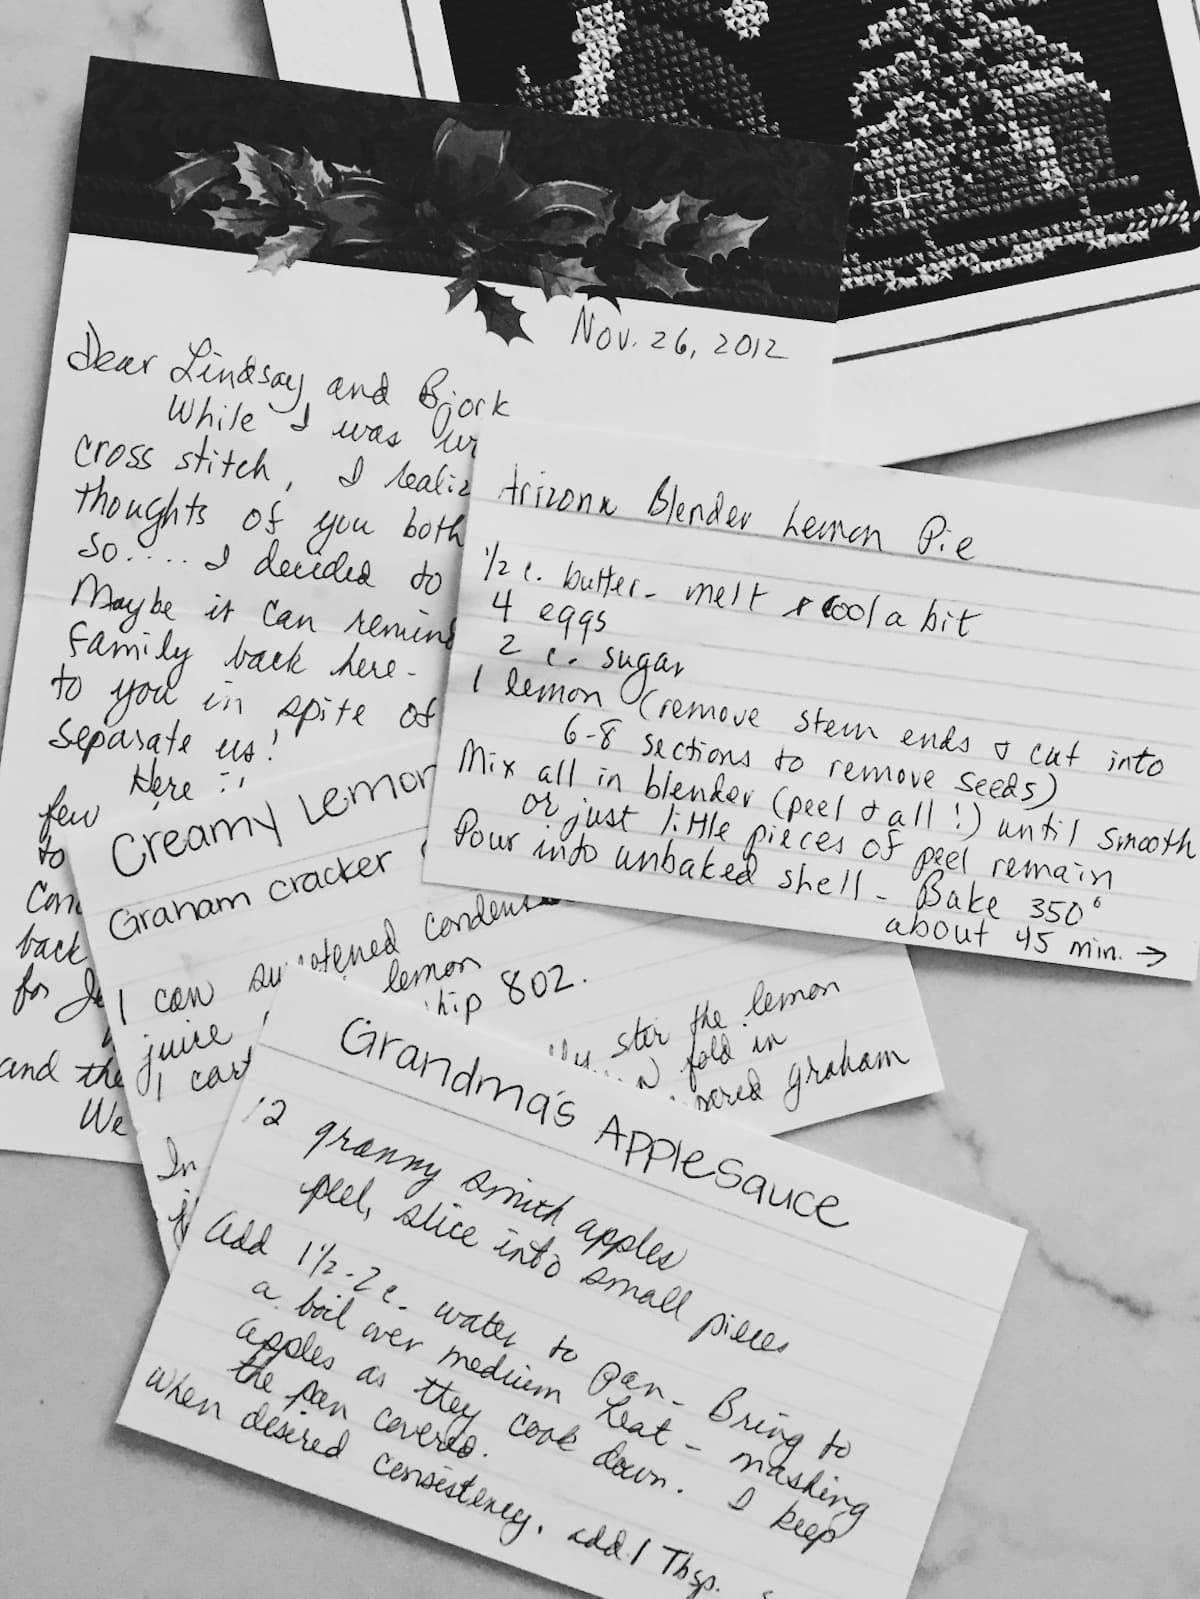 Nov. 26, 2012
Dear Lindsay and Bjork
While I was
cross stitch, I
thoughts of you both
So..... I decided to
Maybe it can remind
family back here-
to you in spite of
separate us!
Here
few
to
back
for
and the
We
Arizona Blender Lemon Pie
1/2 c. butter - melt & cool a bit
4 eggs
2 c. sugar
1 lemon (remove stem ends & cut into
6-8 sections to remove seeds)
Mix all in blender (peel & all!) until smooth
or just little pieces of peel remain
Pour into unbaked shell - Bake 350°
about 45 min. →
Creamy Lemon
Graham cracker
1 can condens
juice lemon
1 8oz.
In
stir the lemon
fold in
graham
Grandma's Applesauce
12 granny smith apples
peel, slice into small pieces
Add 1 1/2-2 c. water to pan - Bring to
a boil over medium heat - mashing
apples as they cook down. I keep
the pan covered.
When desired consistency, add 1 Tbsp.